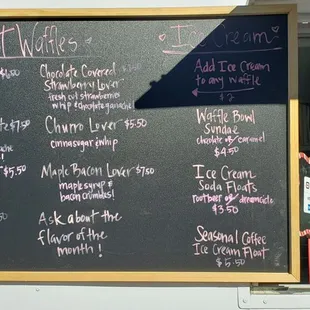 Waffles
Chocolate Covered
Strawberry Lover
fresh cut strawberries
whip & chocolate ganache
Churro Lover $5.50
cinnasugar & whip
Maple Bacon Lover $7.50
maple syrup &
bacon crumbles!
Ask about the
flavor of the
month!
Ice Cream
Add Ice Cream
to any Waffle
$2
Waffle Bowl
Sundae
chocolate or caramel
$4.50
Ice Cream
Soda Floats
root beer or dreamsicle
$3.50
Seasonal Coffee
Ice Cream Float
$5.50